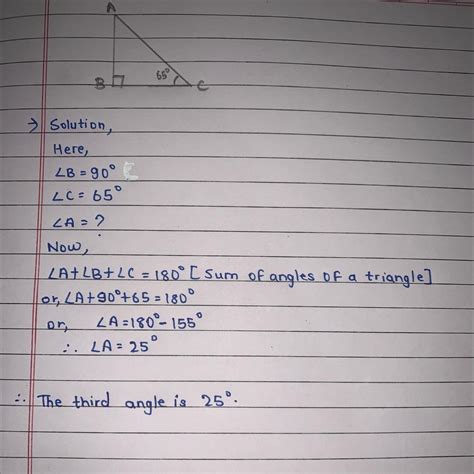 A
B 65° C
→ Solution,
Here,
∠B = 90°
∠C = 65°
∠A = ?
Now,
∠A+∠B+∠C = 180° [Sum of angles of a triangle]
or, ∠A+90°+65 = 180°
or, ∠A = 180° - 155°
∴ ∠A = 25°
∴ The third angle is 25°.